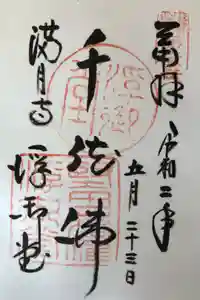 奉拝
令和二年
五月二十三日
千体佛
満月寺
浮御堂